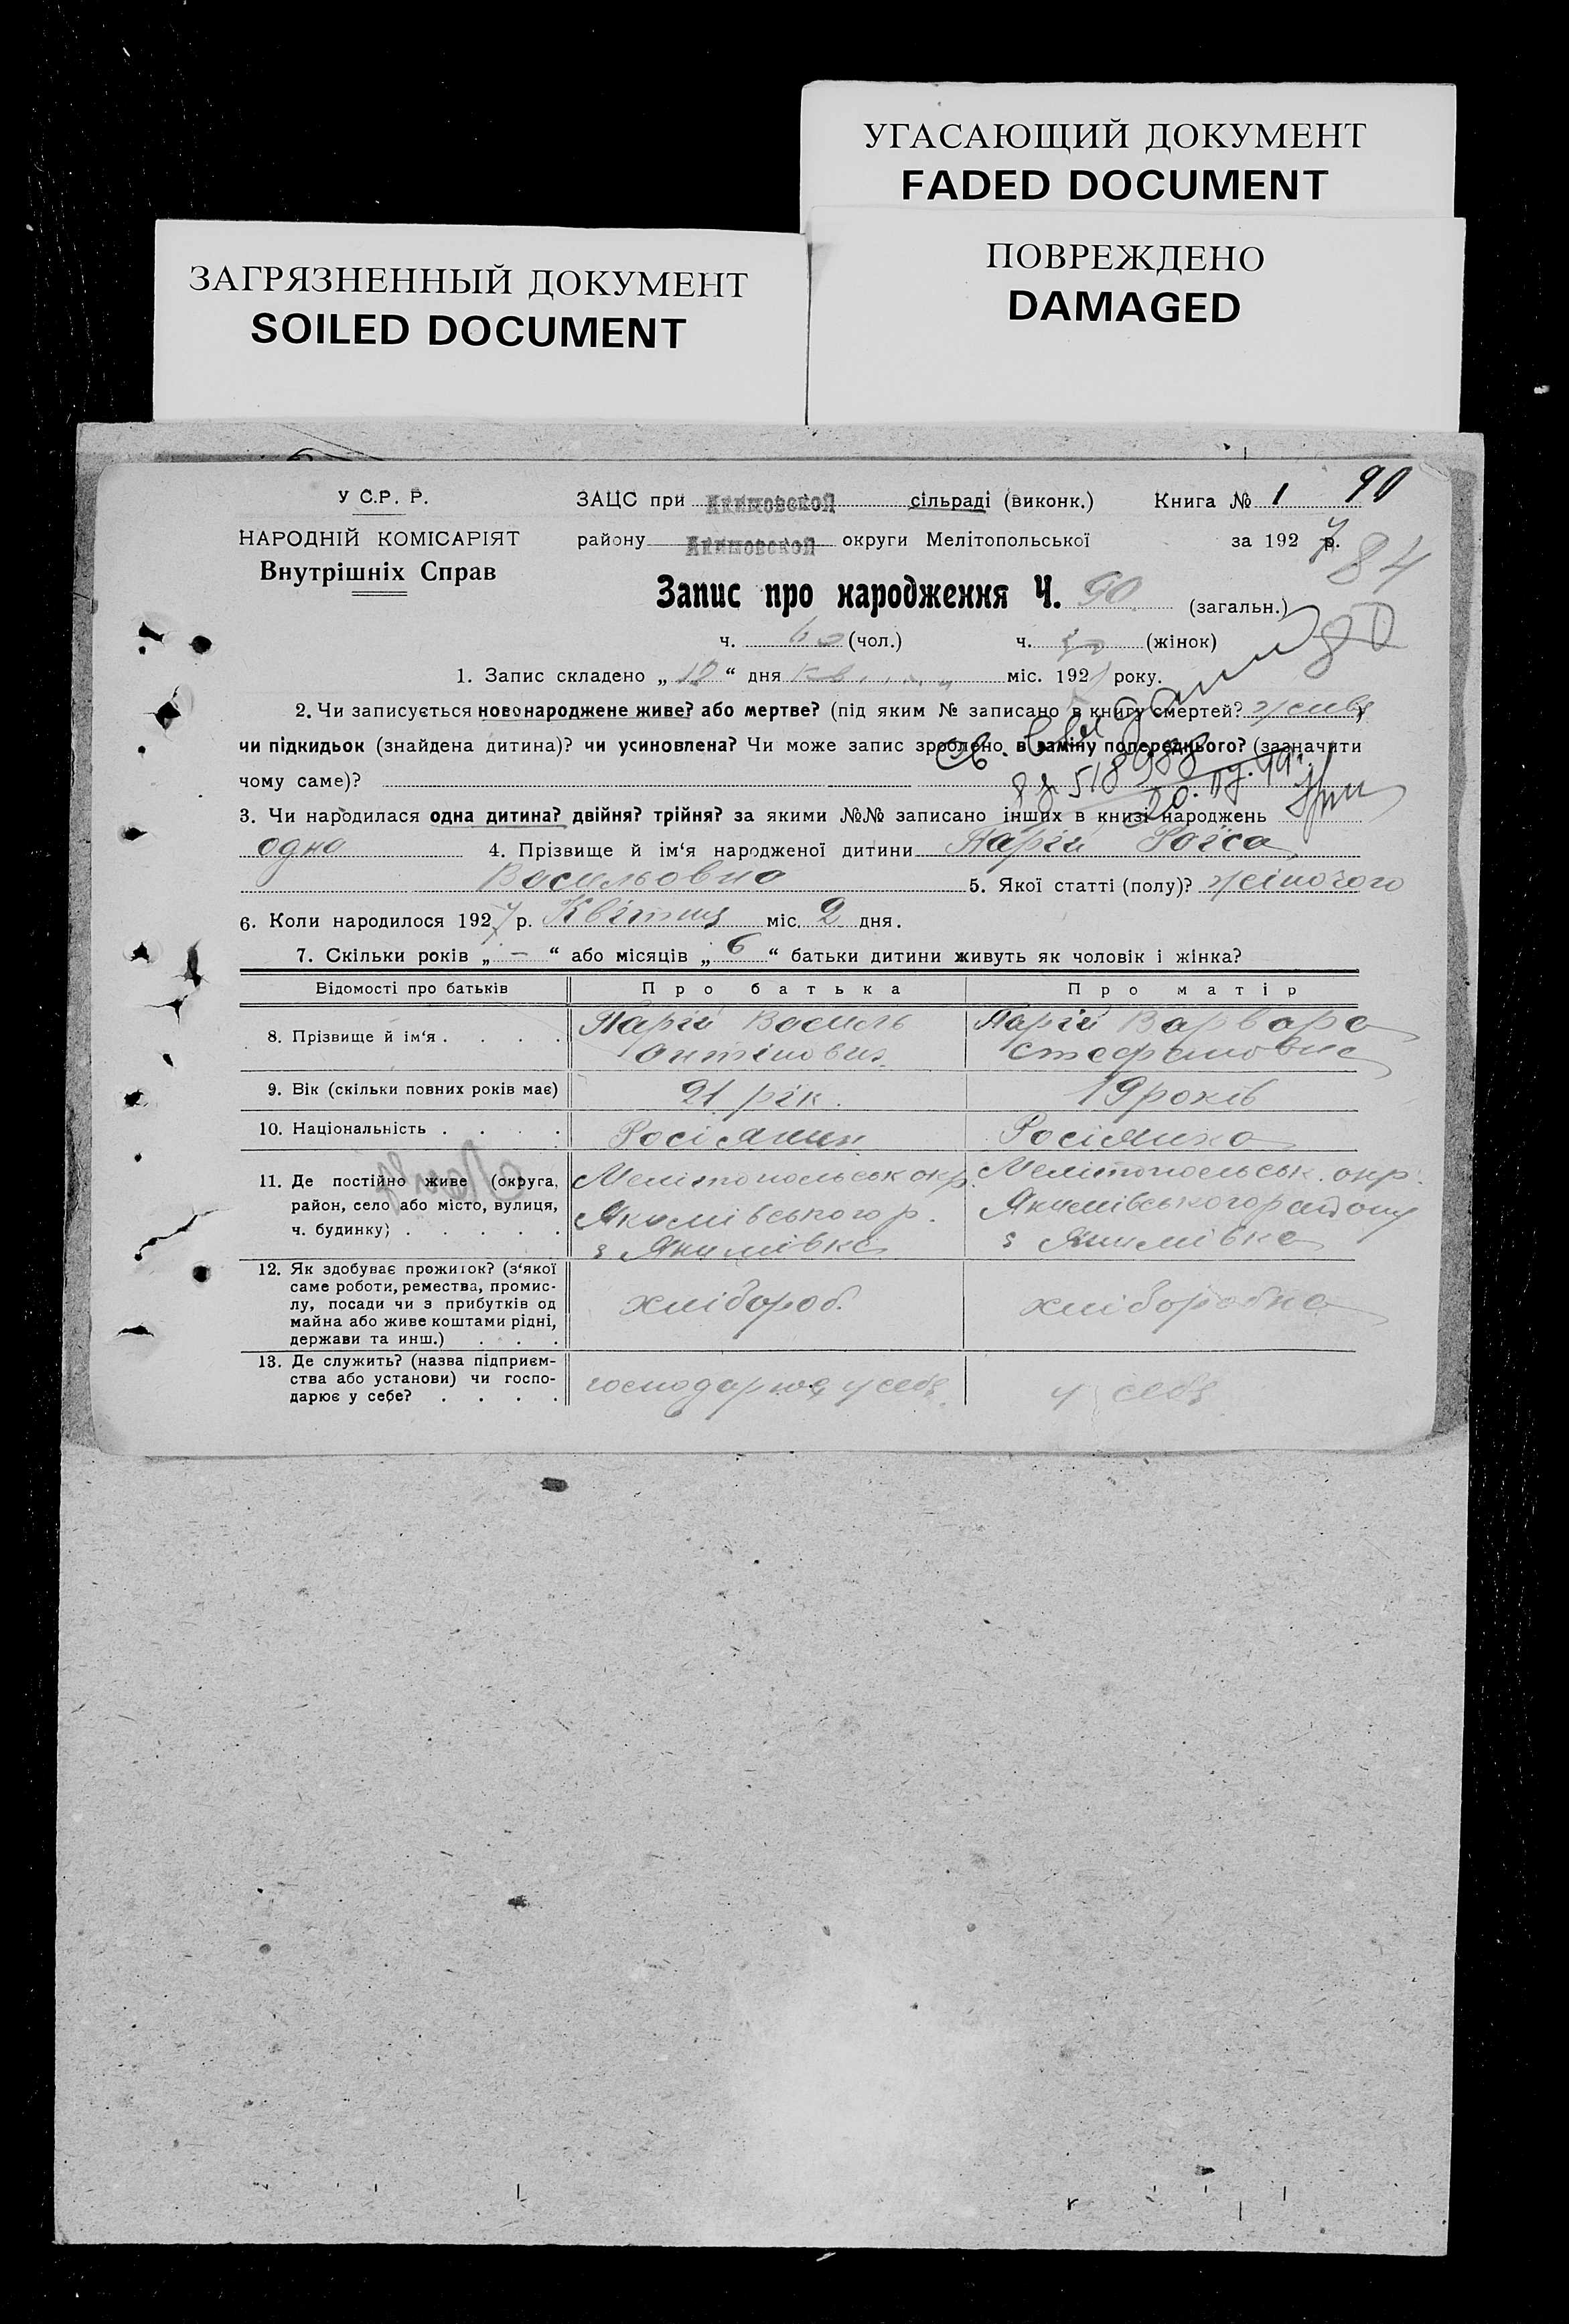 УГАСАЮЩИЙ ДОКУМЕНТ
FADED DOCUMENT
ЗАГРЯЗНЕННЫЙ ДОКУМЕНТ
SOILED DOCUMENT
ПОВРЕЖДЕНО
DAMAGED
У С.Р. Р.
НАРОДНІЙ КОМІСАРІЯТ
Внутрішніх Справ
ЗАЦС при Акимовской сільраді (виконк.) Книга № 1 90
району Акимовской округи Мелітопольської за 1927 р.
84
Запис про народження Ч. 90 (загальн.)
ч. (чол.) ч. (жінок)
1. Запис складено „ “ дня міс. 192 року.
2. Чи записується новонароджене живе? або мертве? (під яким № записано в книгу смертей? живе
чи підкидьок (знайдена дитина)? чи усиновлена? Чи може запис зроблено в заміну попереднього? (зазначити
чому саме)?
3. Чи народилася одна дитина? двійня? трійня? за якими №№ записано інших в книзі народжень
одна 4. Прізвище й ім'я народженої дитини Парій Раїса
Васильовна 5. Якої статті (полу)? жіночого
6. Коли народилося 1927 р. Квітня міс. 2 дня.
7. Скільки років „ — “ або місяців „ 6 “ батьки дитини живуть як чоловік і жінка?
Відомості про батьків Про батька Про матір
8. Прізвище й ім'я . . . . Парій Василь Парій Варвара
Антінович Стефановна
9. Вік (скільки повних років має) 21 рік. 19 років
10. Національність . . . . Росіянин Росіянка
11. Де постійно живе (округа, Мелітопольськ окр. Мелітопольськ. окр.
район, село або місто, вулиця, Якимівського р. Якимівського району
ч. будинку) . . . . . с Якимівка с Якимівка
12. Як здобуває прожиток? (з'якої
саме роботи, ремества, промис-
лу, посади чи з прибутків од хлібороб. хліборобка
майна або живе коштами рідні,
держави та инш.) . . .
13. Де служить? (назва підприєм-
ства або установи) чи госпо- господарює у себе у себе
дарює у себе? . . . .